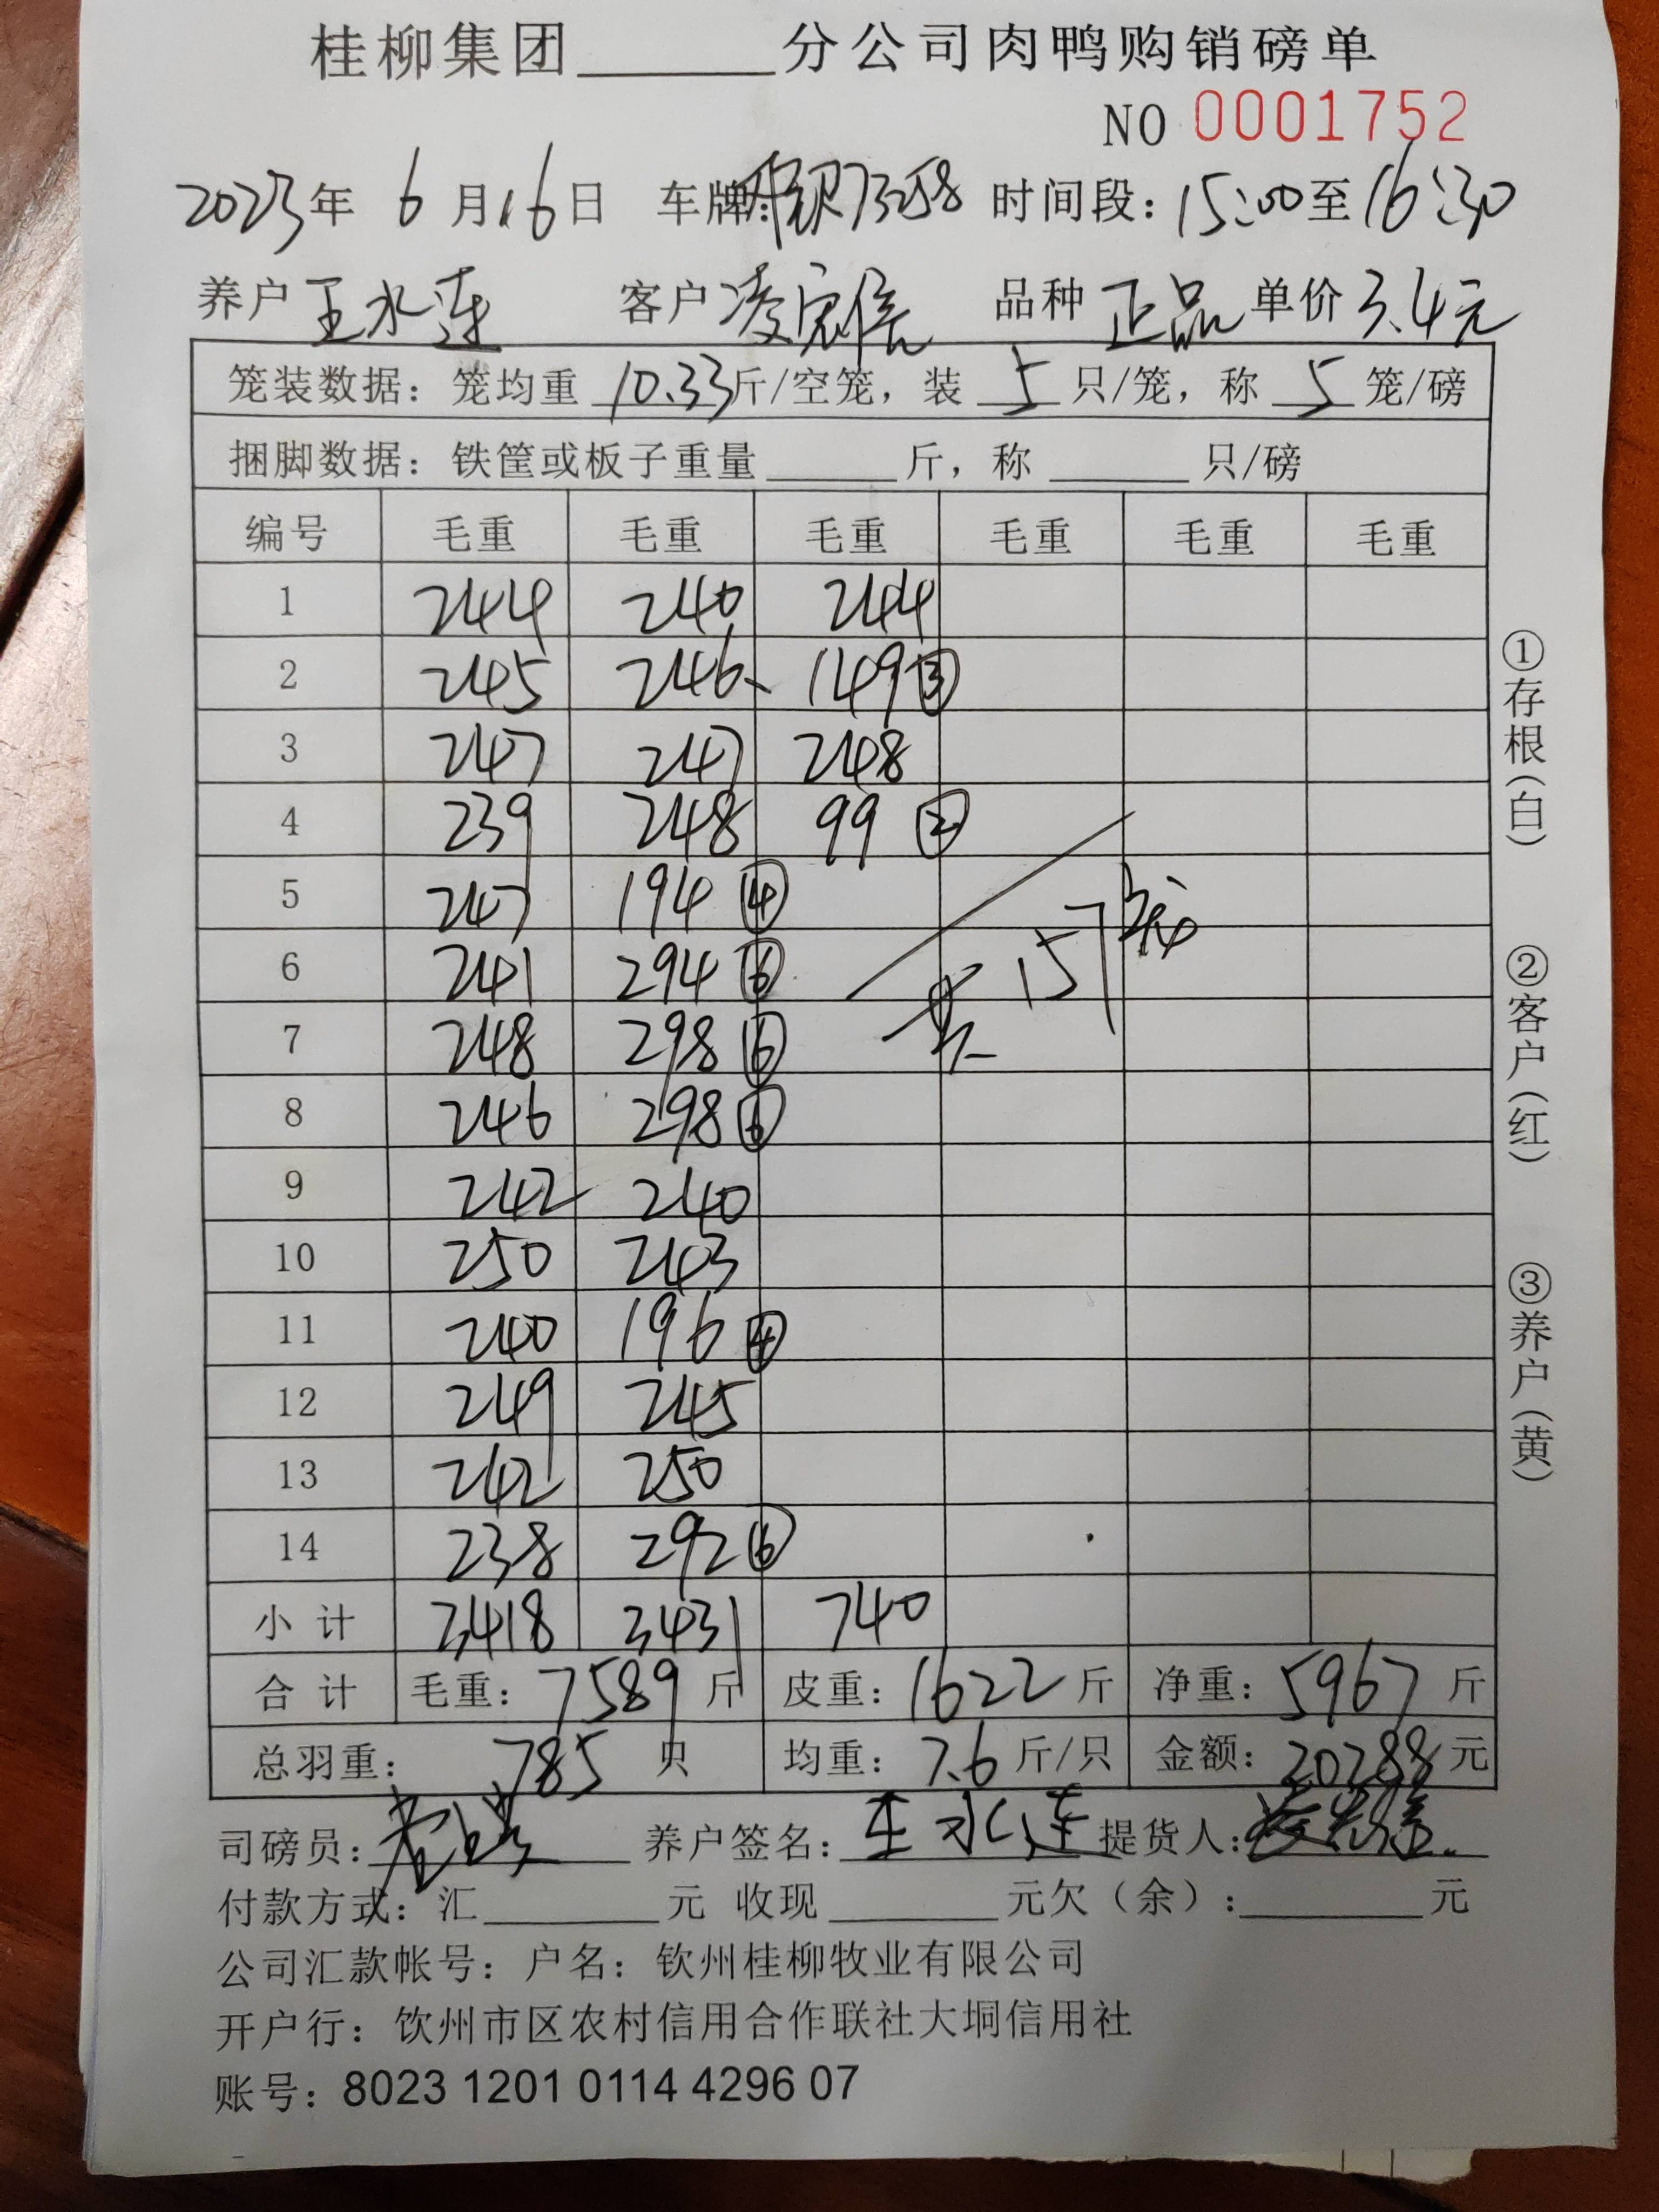 桂柳集团______分公司肉鸭购销磅单
NO 0001752
2023年 6月16日 车牌: 73258 时间段: 15:00至16:30
养户 王水连 客户 凌 品种 正品 单价 3.4元
笼装数据: 笼均重 10.33斤/空笼, 装 5 只/笼, 称 5 笼/磅
捆脚数据: 铁筐或板子重量______斤, 称______只/磅
编号 毛重 毛重 毛重 毛重 毛重 毛重
1 244 240 244
2 245 246 149③
3 247 247 248
4 239 248 99 ②
5 247 194 ④
6 241 294 ⑥
7 248 298 ⑥
8 246 298 ⑥
9 242 240
10 250 243
11 240 196 ④
12 249 245
13 242 250
14 238 292 ⑥
共157笼
小计 3,418 3,431 740
合计 毛重: 7589 斤 皮重: 1622 斤 净重: 5967 斤
总羽重: 785 只 均重: 7.6 斤/只 金额: 20288 元
司磅员: 养户签名: 王水连 提货人:
付款方式: 汇______元 收现______元欠(余):______元
公司汇款帐号: 户名: 钦州桂柳牧业有限公司
开户行: 饮州市区农村信用合作联社大垌信用社
账号: 8023 1201 0114 4296 07
①存根(白)
②客户(红)
③养户(黄)